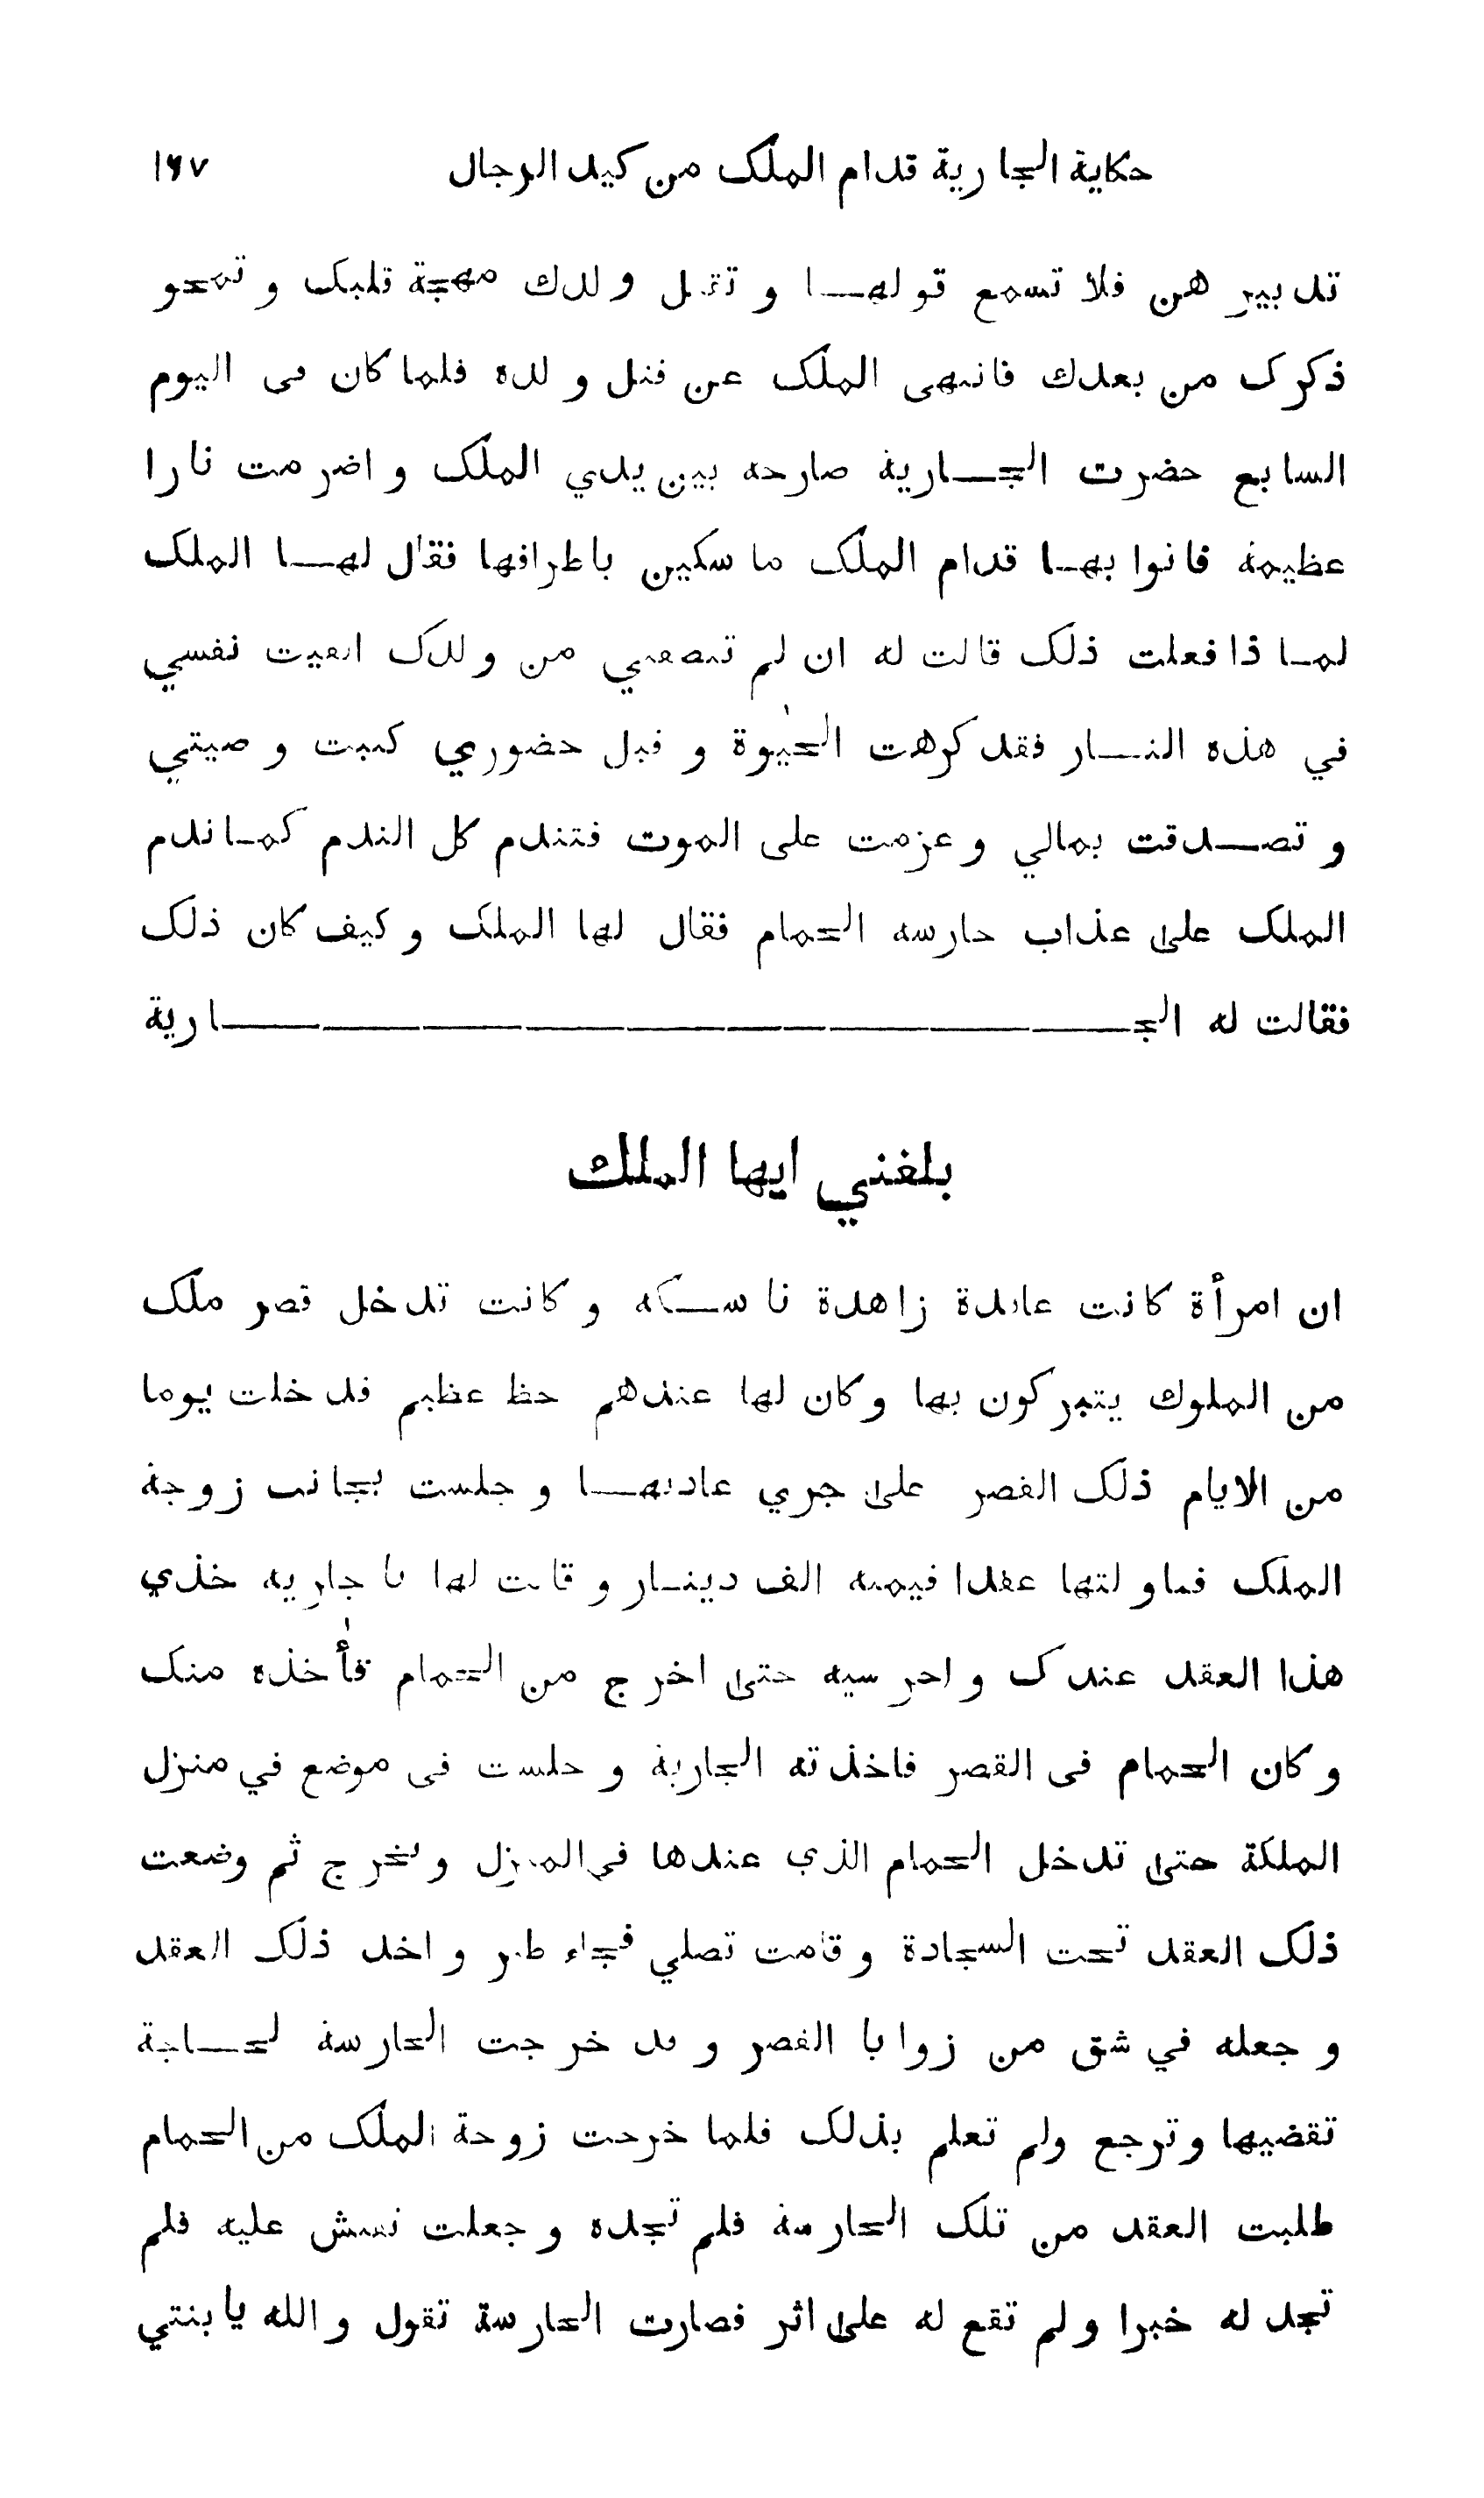 حكاية الجارية قدام الملك من كيد الرجال ١٦٧
تدبير هن فلا تسمع قولها و تقتل ولدك مهجة قلبك و تمحو
ذكرك من بعدك فانتهى الملك عن قتل ولده فلما كان فى اليوم
السابع حضرت الجارية صارخة بين يدي الملك و اضرمت نارا
عظيمة فاتوا بها قدام الملك ماسكين باطرافها فقال لها الملك
لما ذا فعلت ذلك قالت له ان لم تنصفني من ولدك القيت نفسي
في هذه النار فقد كرهت الحيٰوة و قبل حضوري كتبت وصيتي
و تصدقت بمالي و عزمت على الموت فتندم كل الندم كما ندم
الملك على عذاب حارسة الحمام فقال لها الملك و كيف كان ذلك
فقالت له الجارية
بلغني ايها الملك
ان امرأة كانت عابدة زاهدة ناسكة و كانت تدخل قصر ملك
من الملوك يتبركون بها و كان لها عندهم حظ عظيم فدخلت يوما
من الايام ذلك القصر على جري عادتها و جلست بجانب زوجة
الملك فناولتها عقدا قيمته الف دينار و قالت لها يا جارية خذي
هذا العقد عندك و احرسيه حتى اخرج من الحمام فأخذه منك
و كان الحمام فى القصر فاخذته الجارية و جلست فى موضع في منزل
الملكة حتى تدخل الحمام الذي عندها فى المنزل و تخرج ثم وضعت
ذلك العقد تحت السجادة و قامت تصلي فجاء طير و اخذ ذلك العقد
و جعله في شق من زوايا القصر و قد خرجت الحارسة لحاجة
تقضيها و ترجع ولم تعلم بذلك فلما خرجت زوجة الملك من الحمام
طلبت العقد من تلك الحارسة فلم تجده و جعلت تفتش عليه فلم
تجد له خبرا و لم تقع له على اثر فصارت الحارسة تقول و الله يا بنتي